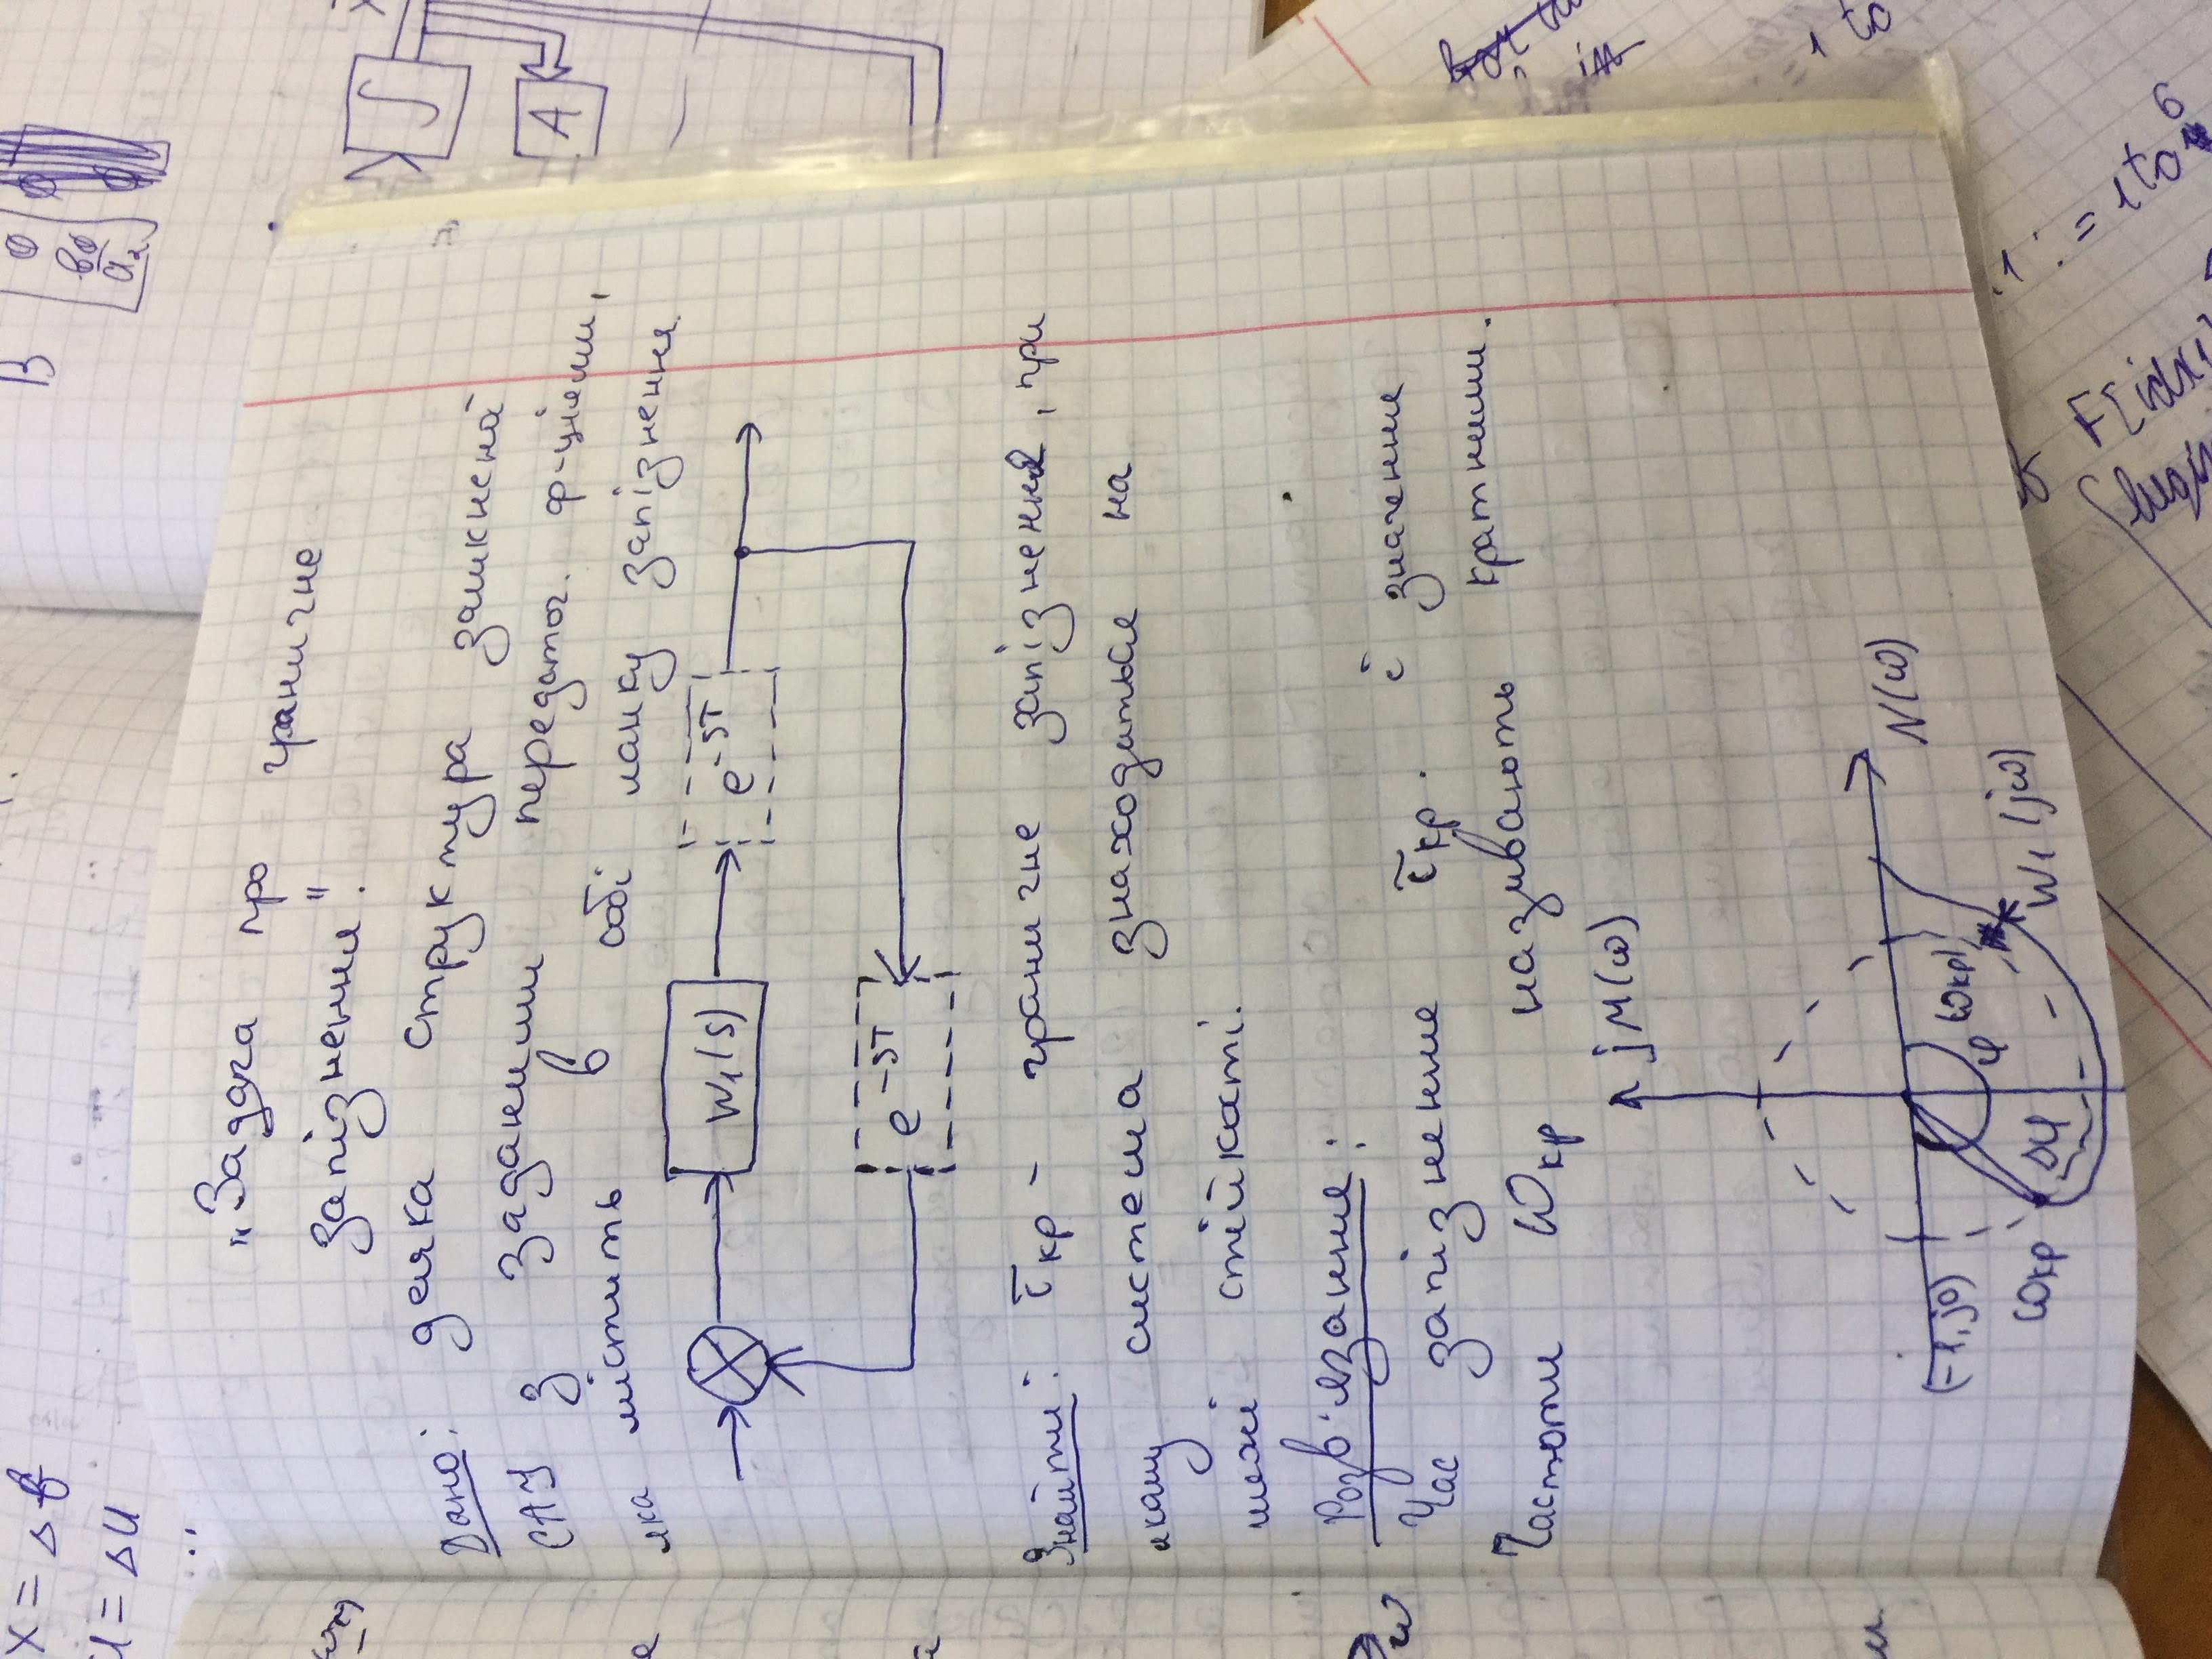 X = Δb
U = ΔU
B
0
b0
a2
„Задача про граничне
запізнення".
Дано: деяка структура замкненої
САУ з заданими передаточ. ф-ціями,
яка містить в собі ланку запізнення.
W1(s)
e^-sτ
e^-sτ
∫
A
Знайти: τкр - граничне запізнення, при
якому система знаходиться на
межі стійкості.
Розв'язання:
Час запізнення τкр. і значення
Частоти ωкр називають кратними.
jM(ω)
N(ω)
(-1, j0)
φ
(ωкр)
ωкр
Δφ
W1(jω)